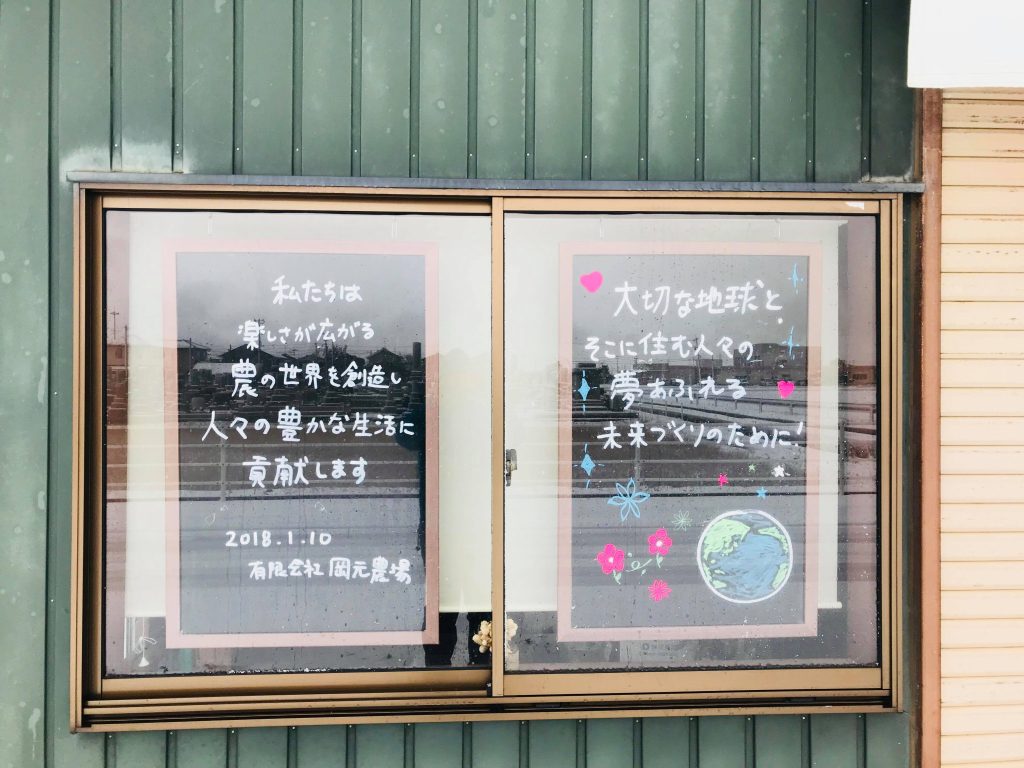 私たちは
楽しさが広がる
農の世界を創造し
人々の豊かな生活に
貢献します
2018.1.10
有限会社 岡元農場
大切な地球と
そこに住む人々の
夢あふれる
未来づくりのために!